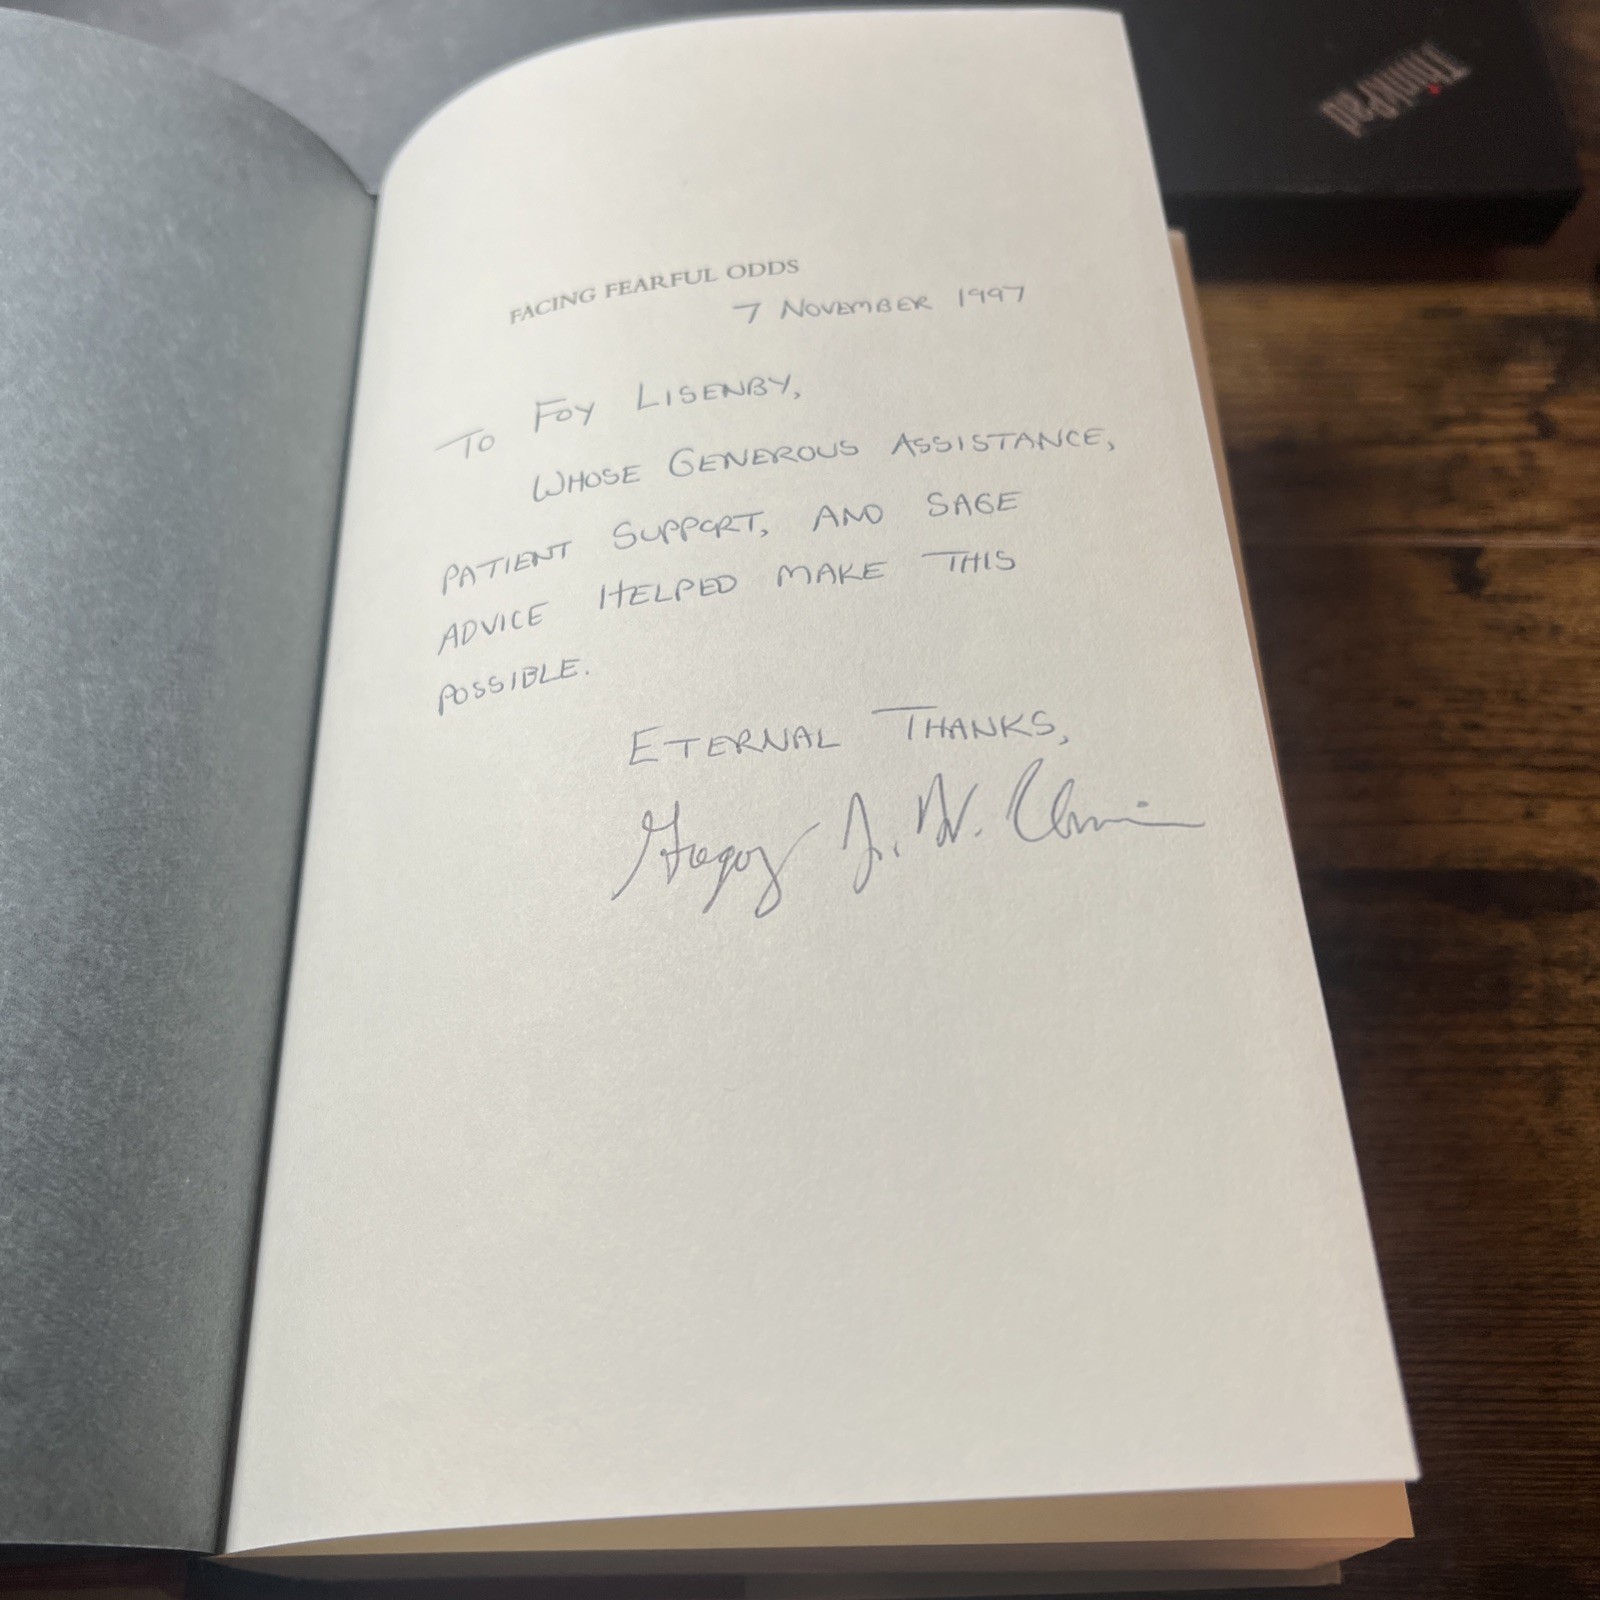 ThinkPad
FACING FEARFUL ODDS
7 NOVEMBER 1997
TO FOY LISENBY,
WHOSE GENEROUS ASSISTANCE,
PATIENT SUPPORT, AND SAGE
ADVICE HELPED MAKE THIS
POSSIBLE.
ETERNAL THANKS,
Gregory J. W. Urwin